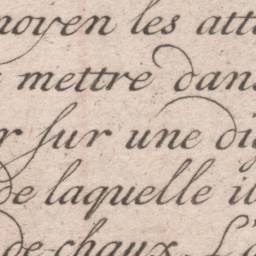 moyen les att
mettre dans
r sur une di
de laquelle il
de chaux. L'